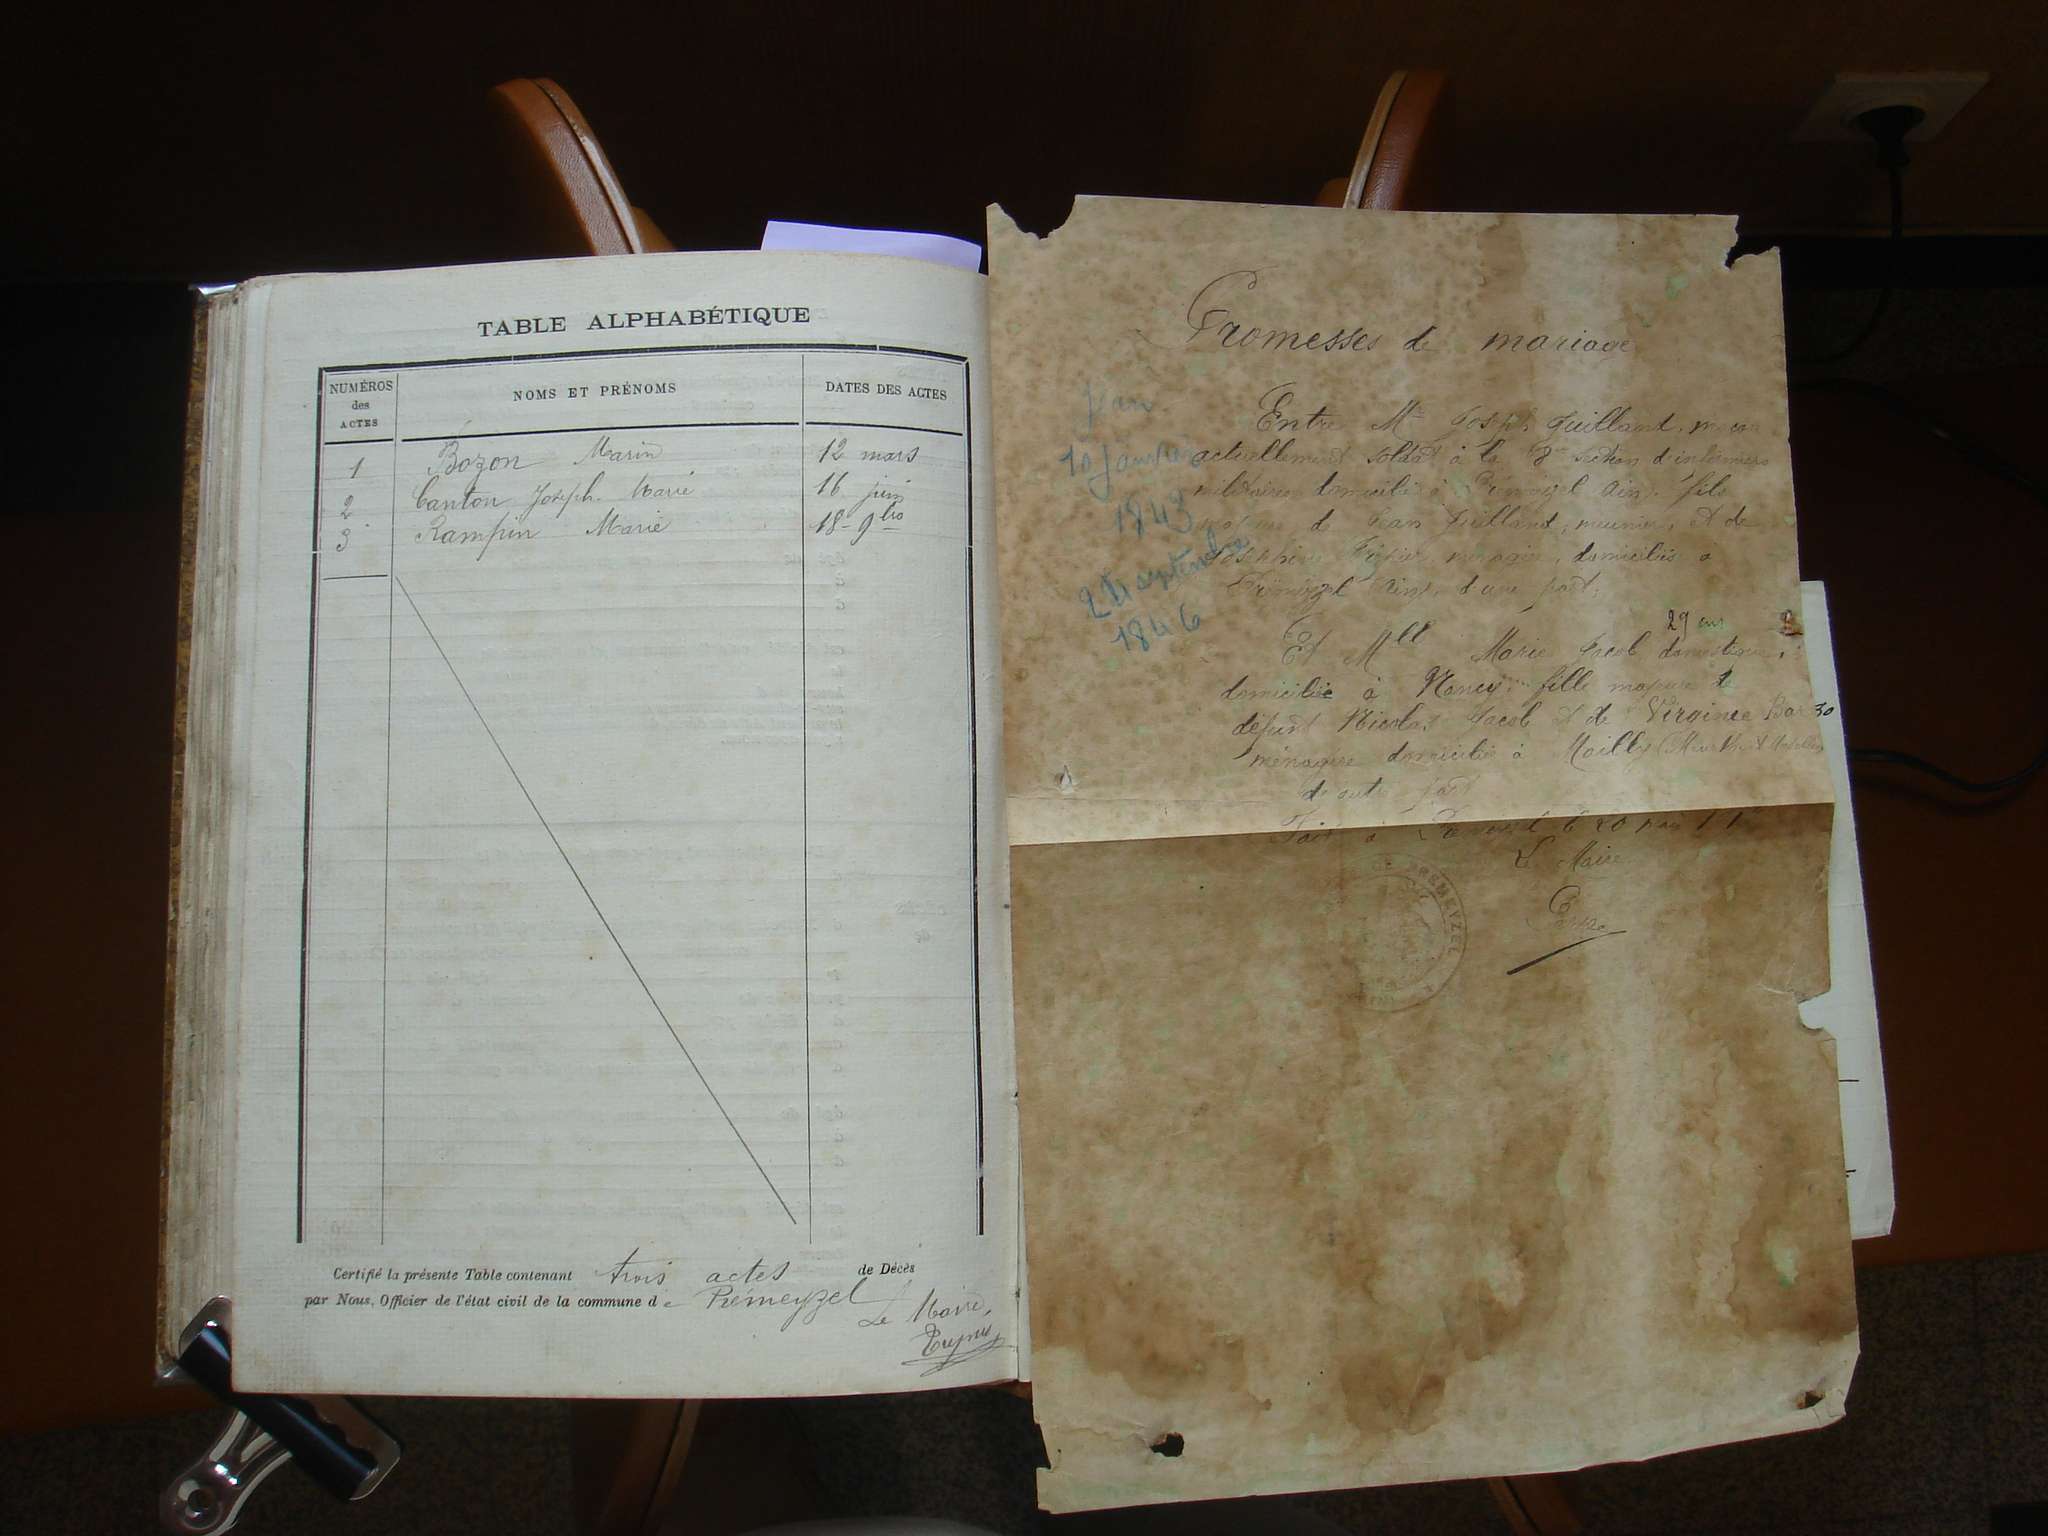 TABLE ALPHABÉTIQUE
NUMÉROS des ACTES
NOMS ET PRÉNOMS
DATES DES ACTES
1 Bozon Marin 12 mars
2 Canton Joseph-Marie 16 juin
3 Rampin Marie 18-9bre
Certifié la présente Table contenant trois actes de Décès
par Nous, Officier de l'état civil de la commune de Prémeyzel
Le Maire,
Promesses de mariage
Entre Mr Joseph Juilland, maçon
actuellement soldat à la section d'infirmiers
militaires domicilié à Prémeyzel Ain, fils
majeur de Jean Juilland, meunier, et de
Joséphine ménagère, domiciliés à
Prémeyzel Ain, d'une part;
29 ans
Et Mlle Marie Jacob domestique,
domiciliée à Nancy, fille majeure de
défunt Nicolas Jacob et de Virginie
ménagère domiciliée à Mailly (Meurthe et Moselle)
d'autre part
Fait à Prémeyzel le 20 mai
Le Maire
PREMEYZEL
10 janvier
1843
24 septembre
1846